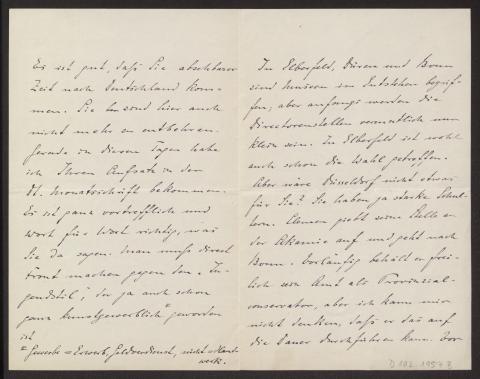 Es ist gut, daß Sie absehbarer
Zeit nach Deutschland kom-
men. Sie sind hier auch
nicht mehr zu entbehren.
Gerade in diesen Tagen habe
ich Ihren Aufsatz in der
M. Monatsschrift bekommen.
Es ist ganz vortrefflich und
Wort für Wort richtig, was
Sie da sagen. Man muß direct
Front machen gegen den „Ju-
gendstil", der ja auch schon
ganz kunstgewerblich* geworden
ist
* Gewerbe = Erwerb, Geldverdienst, nicht = Hand-
werk.
In Elberfeld, Düren und Bonn
sind Museen im Entstehen begrif-
fen, aber anfangs werden die
Directorenstellen vermutlich nur
klein sein. In Elberfeld ist wohl
auch schon die Wahl getroffen.
Aber wäre Düsseldorf nicht etwas
für Sie? Sie haben ja starke Schul-
tern. Clemen giebt seine Stelle an
der Akademie auf und geht nach
Bonn. Vorläufig behält er frei-
lich sein Amt als Provinzial-
conservator, aber ich kann mir
nicht denken, daß er das auf
die Dauer durchführen kann. Vor
D 192. 1957 3